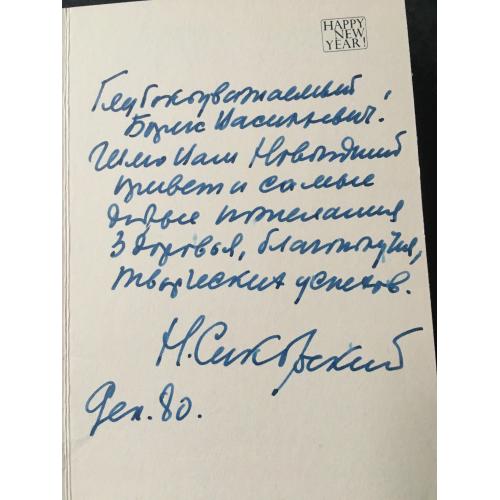 HAPPY
NEW
YEAR!
Глубокоуважаемый
Борис Васильевич!
Шлю Вам Новогодний
привет и самые
добрые пожелания
здоровья, благополучия,
творческих успехов.
Н. Сикорский
Дек. 80.